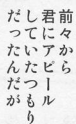 前々から
君にアピール
していたつもり
だったんだが